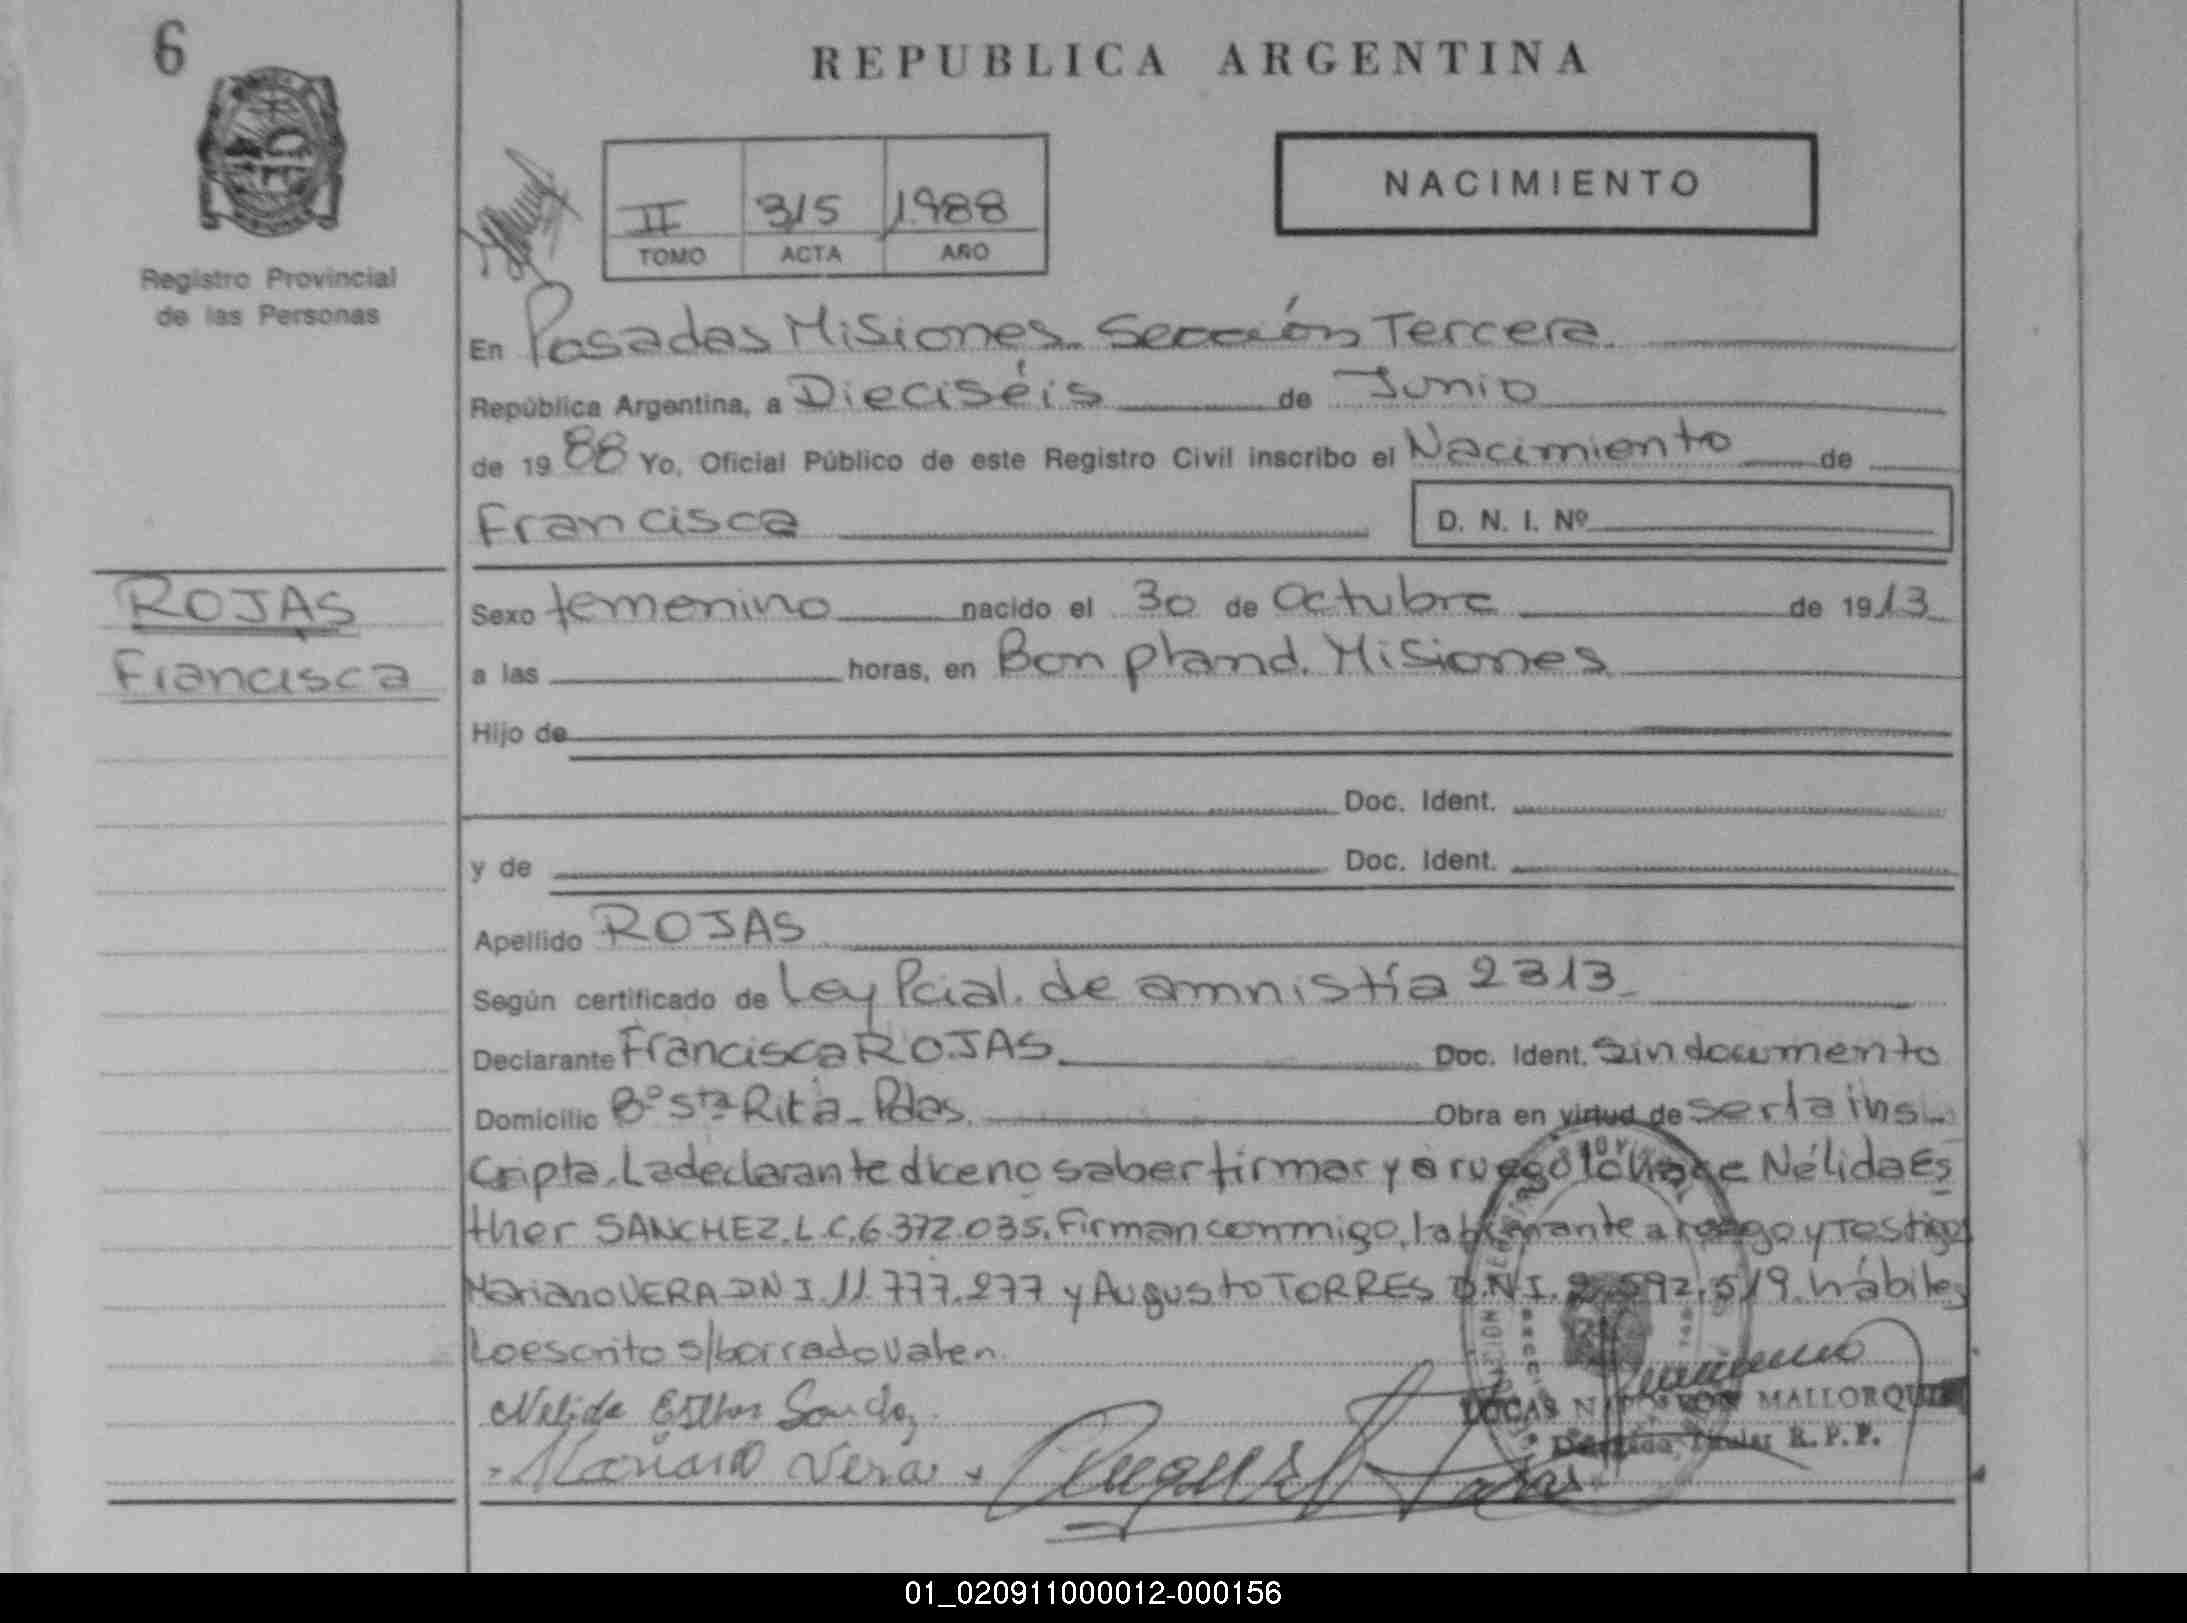 6
REPUBLICA ARGENTINA
NACIMIENTO
II 315 1988
TOMO ACTA AÑO
Registro Provincial
de las Personas
En Posadas Misiones. Sección Tercera.
República Argentina, a Dieciséis de Junio
de 1988 Yo, Oficial Público de este Registro Civil inscribo el Nacimiento de
Francisca D. N. I. Nº
ROJAS
Francisca
Sexo femenino nacido el 30 de Octubre de 1913
a las horas, en Bonpland. Misiones
Hijo de
Doc. Ident.
y de Doc. Ident.
Apellido ROJAS
Según certificado de Ley Pcial. de amnistía 2313
Declarante Francisca ROJAS Doc. Ident. Sin documento
Domicilio Bº Sta Rita - Pdas. Obra en virtud de ser la ins
cripta. La declarante dice no saber firmar y a ruego lo hace Nélida Es
ther SANCHEZ. L.C. 6.372.035. Firman conmigo, la firmante a ruego y Testigos
Mariano VERA DNI. 11.777.277 y Augusto TORRES D.N.I. 592.519. hábiles
Lo escrito s/borrado valen.
Nelida Esther Sanchez
Mariano Vera
LUCAS NAPOLEON MALLORQUIN
Delegado Titular R.P.P.
01_020911000012-000156